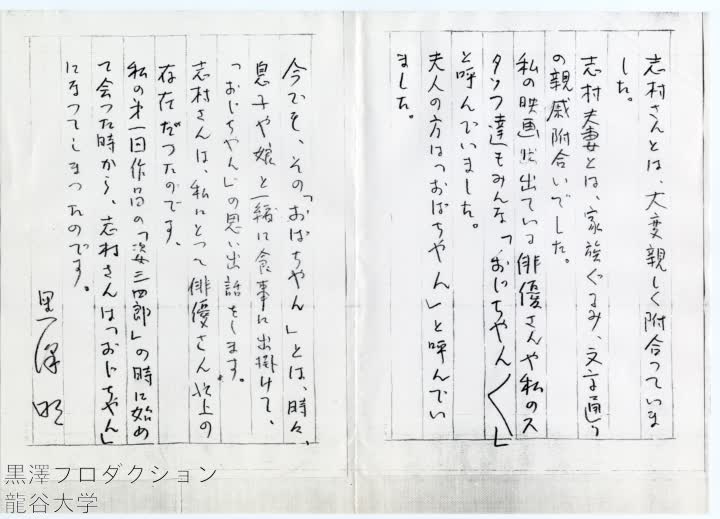 志村さんとは、大変親しく附合っていま
した。
志村夫妻とは、家族ぐるみ、文字通り
の親戚附合いでした。
私の映画に出ている俳優さんや私のス
タッフ達もみんな「おじちゃん〱」
と呼んでいました。
夫人の方は「おばちゃん」と呼んでい
ました。
今でも、その「おばちゃん」とは、時々、
息子や娘と一緒に食事に出掛けて、
「おじちゃん」の思い出話をします。
志村さんは、私にとって俳優さん以上の
存在だったのです。
私の第一回作品の「姿三四郎」の時に始め
て会った時から、志村さんは「おじちゃん」
になってしまったのです。
黒澤明
黒澤プロダクション
龍谷大学